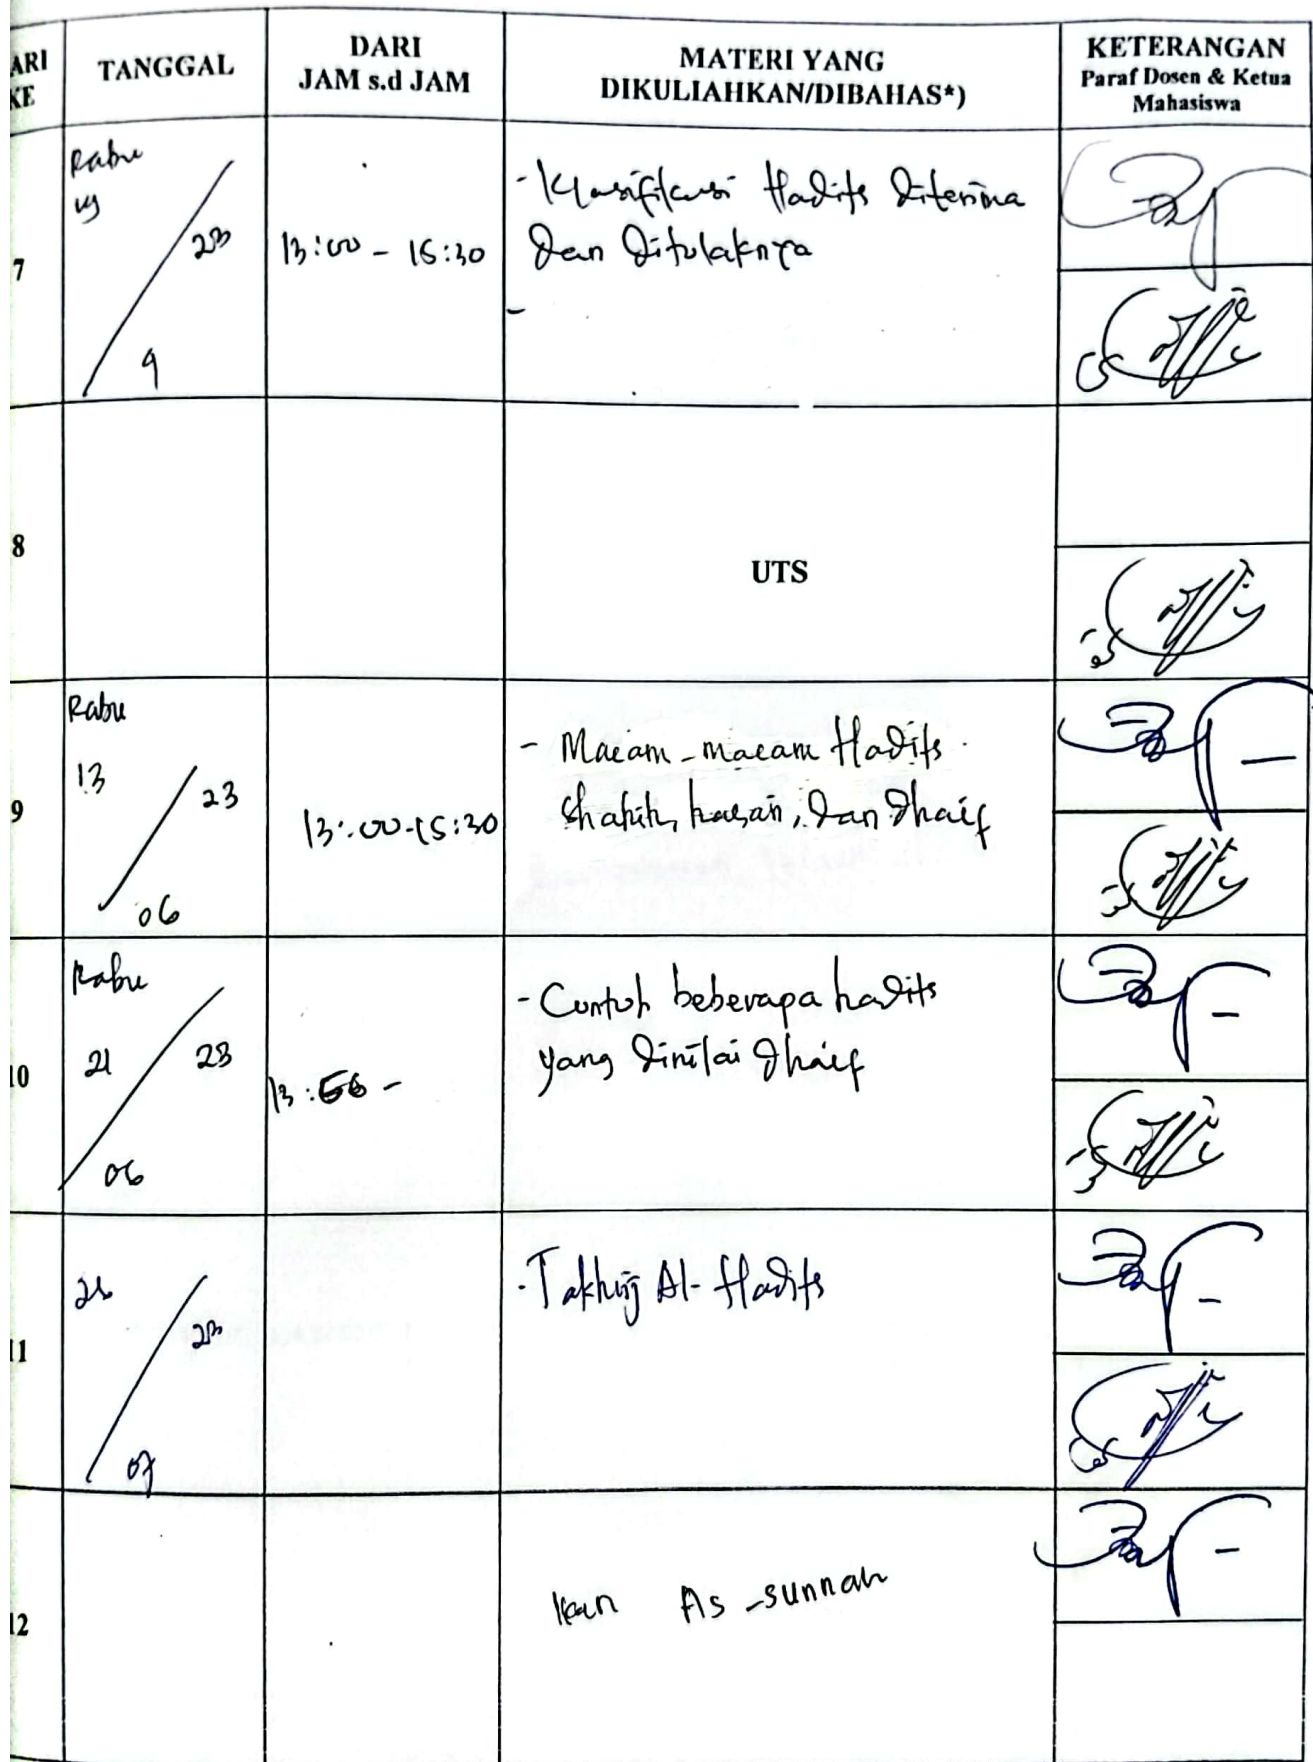 ARI
KE
TANGGAL
DARI
JAM s.d JAM
MATERI YANG
DIKULIAHKAN/DIBAHAS*)
KETERANGAN
Paraf Dosen & Ketua
Mahasiswa
7
Rabu
23
9
13:00 - 15:30
- Klasifikasi Hadits diterima
dan ditolaknya
-
8
UTS
9
Rabu
13
23
06
13:00-15:30
- Macam-macam Hadits
shahih, hasan, dan dhaif
10
Rabu
21
23
06
13:
- Contoh beberapa hadits
yang dinilai dhaif
11
23
07
- Takhrij Al-Hadits
12
As-sunnah